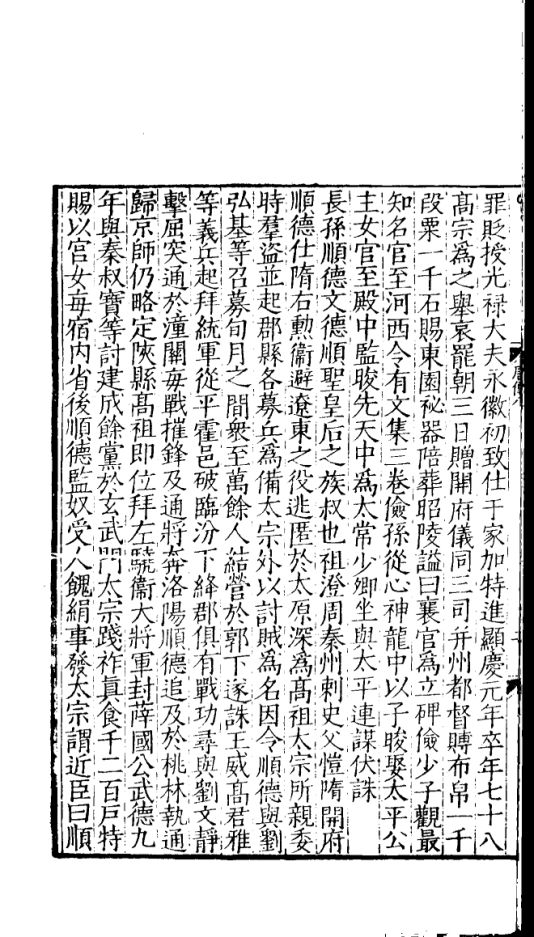 罪貶授光禄大夫永徽初致仕于家加特進顯慶元年卒年七十八
髙宗爲之舉哀罷朝三日贈開府儀同三司并州都督賻布帛一千
段粟一千石賜東園祕器陪葬昭陵謚曰襄官爲立碑儉少子觀最
知名官至河西令有文集三卷儉孫從心神龍中以子晙娶太平公
主女官至殿中監晙先天中爲太常少卿坐與太平連謀伏誅
長孫順德文德順聖皇后之族叔也祖澄周秦州刺史父愷隋開府
順德仕隋右勲衞避遼東之役逃匿於太原深爲髙祖太宗所親委
時羣盗並起郡縣各募兵爲備太宗外以討賊爲名因令順德與劉
弘基等召募旬月之間衆至萬餘人結營於郭下遂誅王威髙君雅
等義兵起拜統軍從平霍邑破臨汾下絳郡俱有戰功尋與劉文静
擊屈突通於潼關毎戰摧鋒及通將奔洛陽順德追及於桃林執通
歸京師仍略定陜縣髙祖即位拜左驍衞大將軍封薛國公武德九
年與秦叔寶等討建成餘黨於玄武門太宗踐祚真食千二百戸特
賜以宫女毎宿内省後順德監奴受人餽絹事發太宗謂近臣曰順